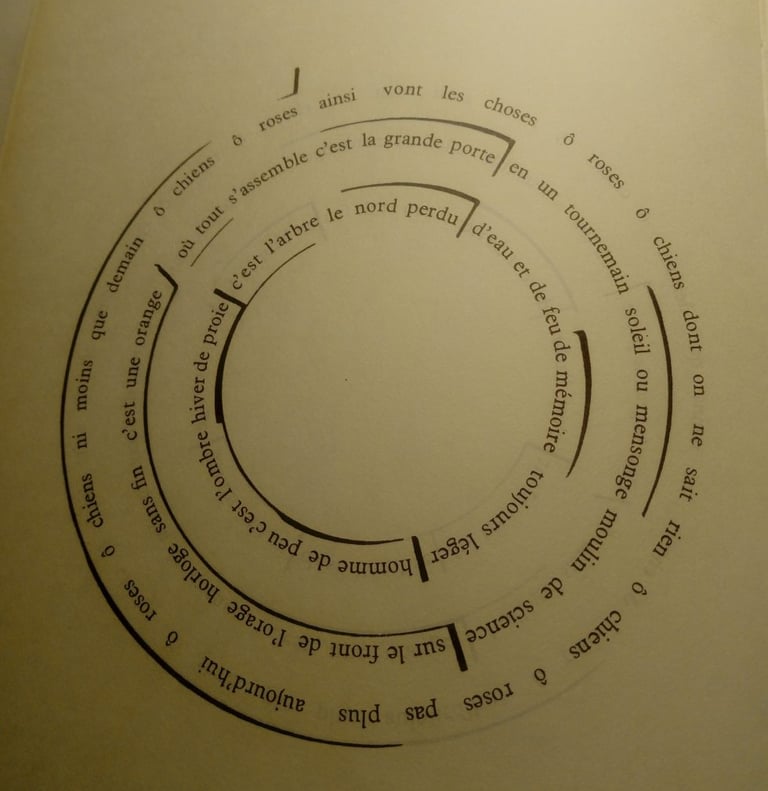 ainsi vont les choses ô roses ô chiens dont on ne sait rien ô chiens ô roses pas plus aujourd'hui ô roses ô chiens ni moins que demain ô chiens ô roses
où tout s'assemble c'est la grande porte en un tournemain soleil ou mensonge moulin de science sur le front de l'orage horloge sans fin c'est une orange
c'est l'arbre le nord perdu d'eau et de feu de mémoire toujours léger homme de peu c'est l'ombre hiver de proie